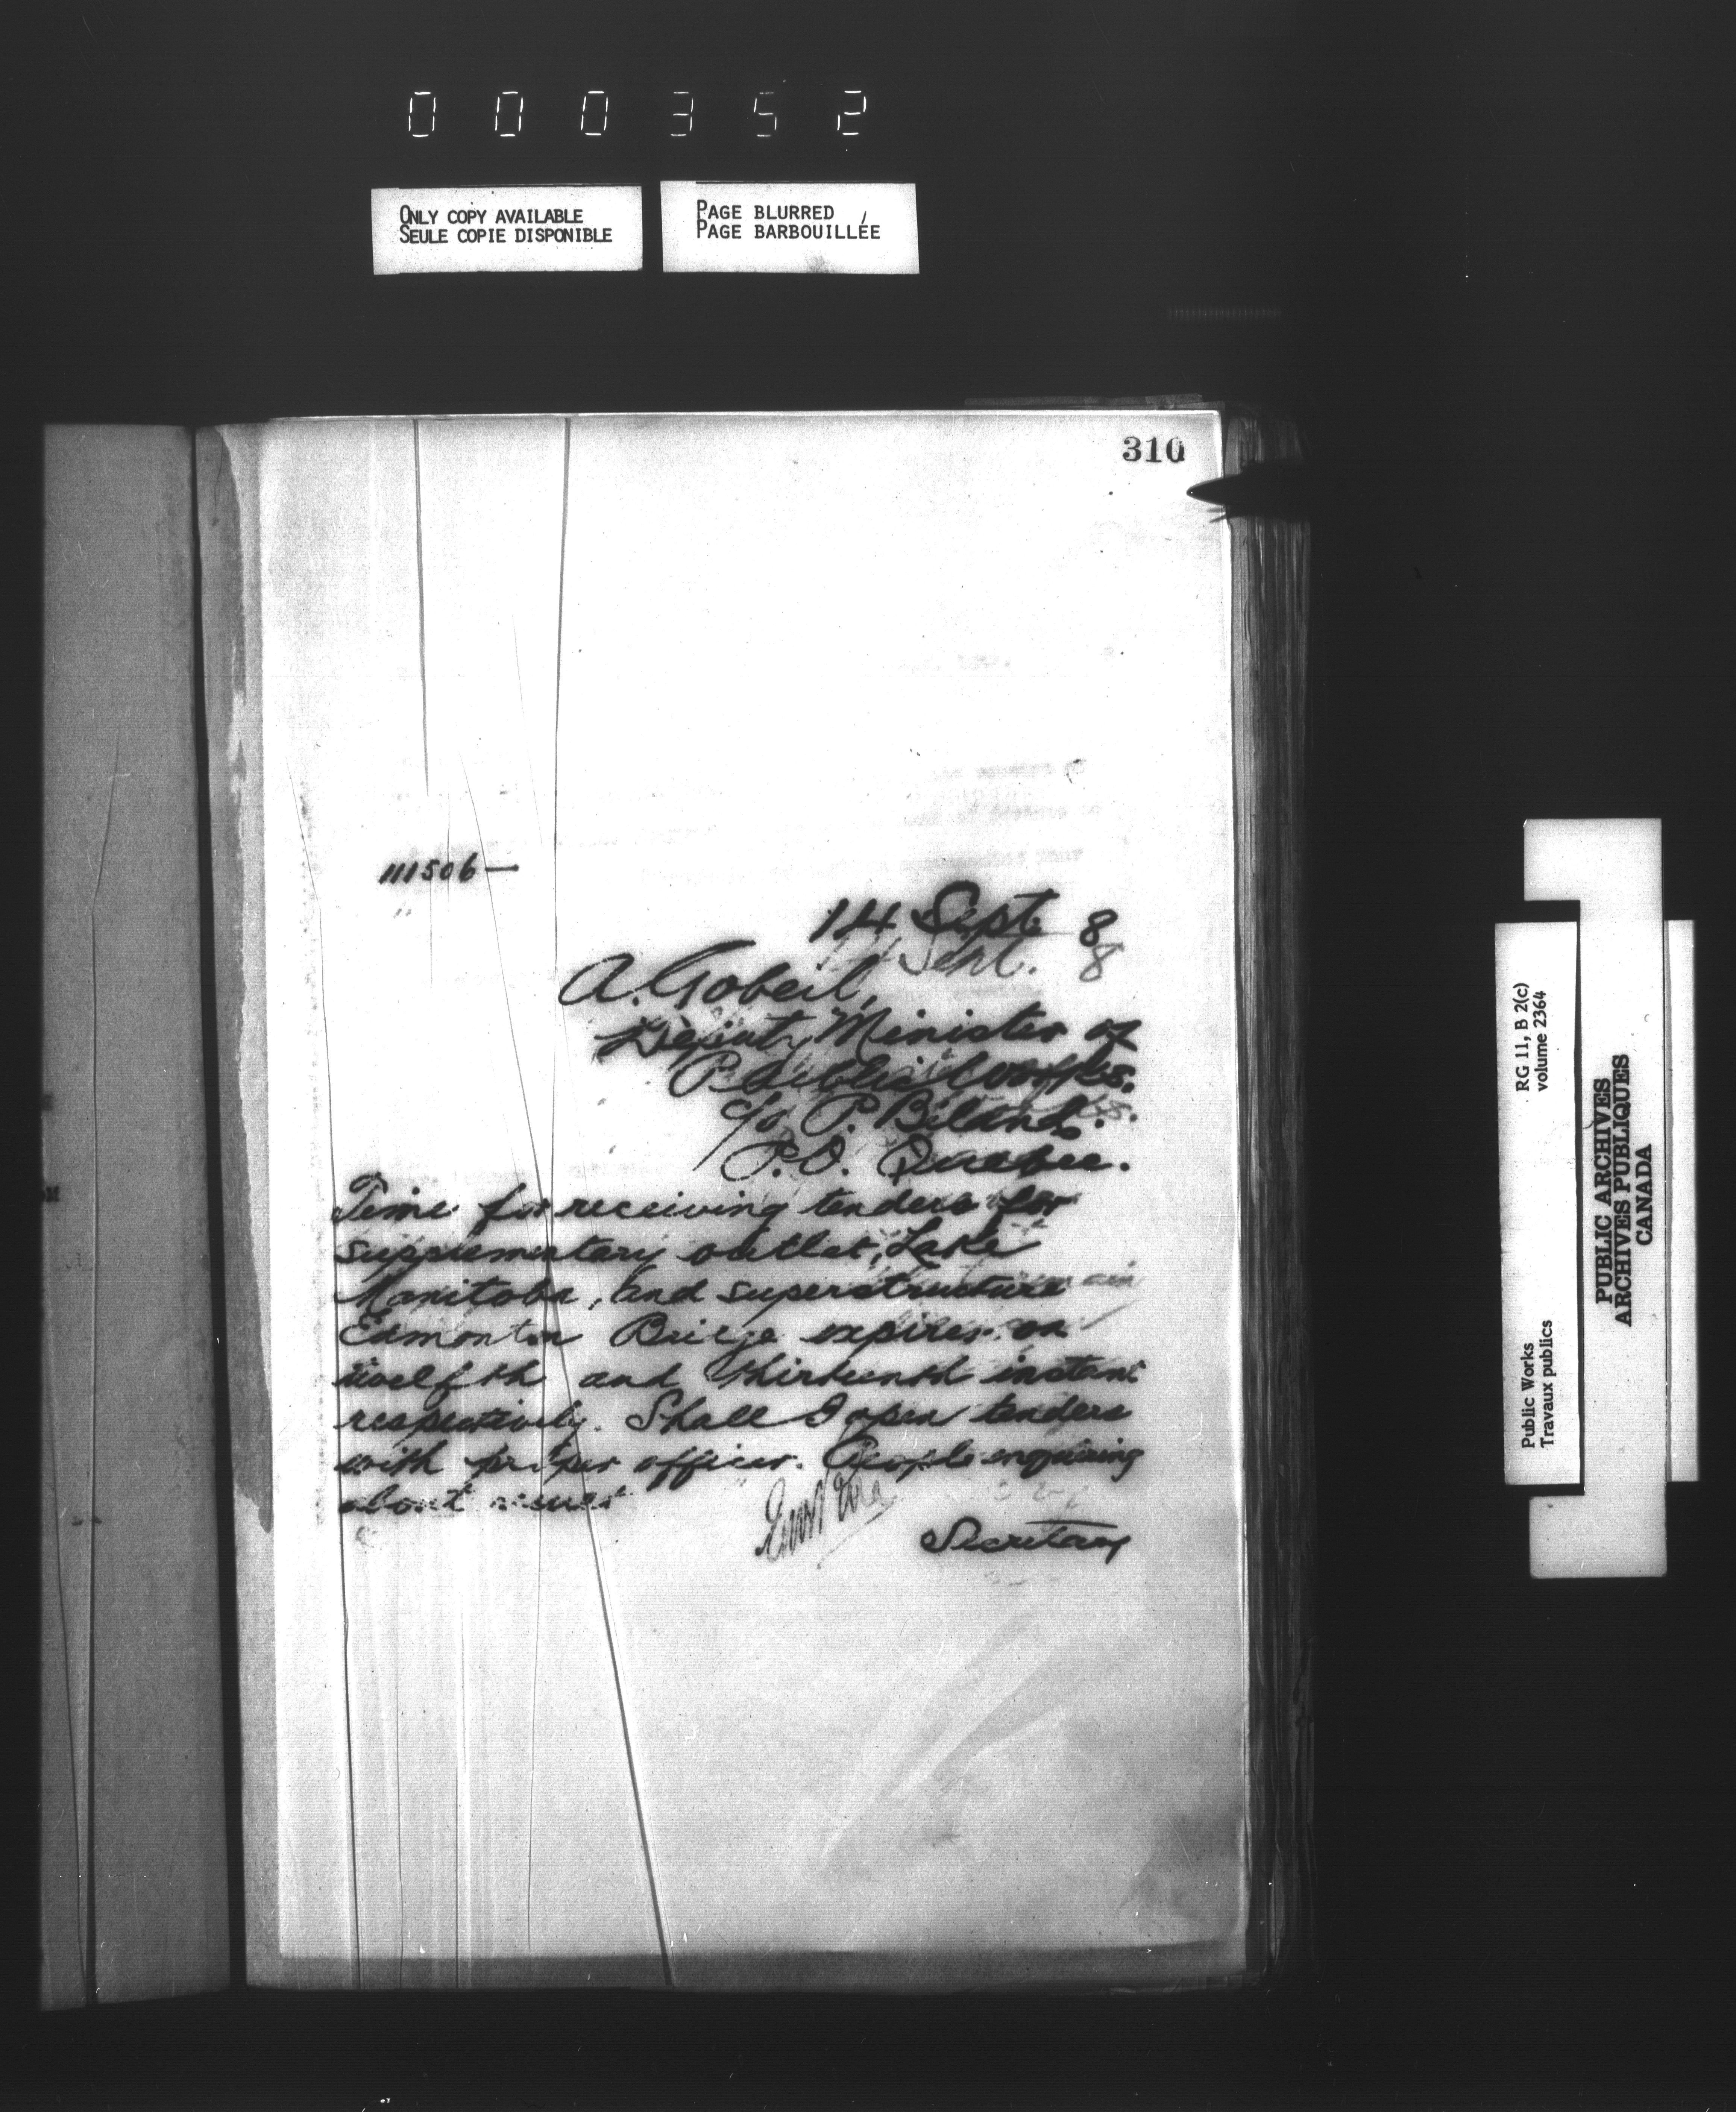 000352
ONLY COPY AVAILABLE
SEULE COPIE DISPONIBLE
PAGE BLURRED
PAGE BARBOUILLÉE
310
111506 —
14 Sept. 8
Sept. 8
A. Gobeil,
Deputy Minister of
Public Works.
c/o P.
P.O. Quebec.
Time for receiving tenders for
supplementary outlet, Lake
Manitoba, and superstructure
Edmonton Bridge expires on
twelfth and thirteenth instant
respectively. Shall I open tenders
with proper officer. People enquiring
about
Secretary
RG 11, B 2(c)
volume 2364
Public Works
Travaux publics
PUBLIC ARCHIVES
ARCHIVES PUBLIQUES
CANADA